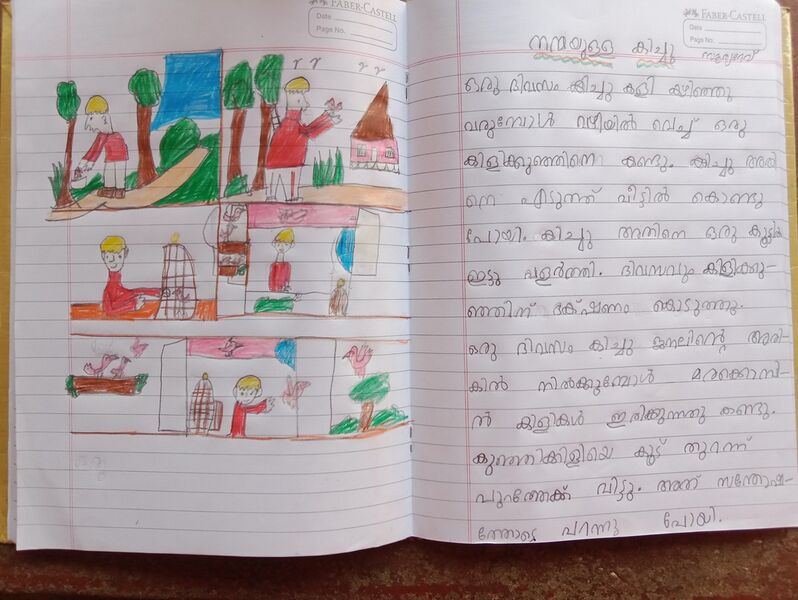 FABER-CASTELL
Date
Page No.
FABER-CASTELL
Date
Page No.
നന്മയുള്ള കിച്ചു
ഒരു ദിവസം കിച്ചു കളി കഴിഞ്ഞു
വരുമ്പോൾ വഴിയിൽ വെച്ച് ഒരു
കിളിക്കുഞ്ഞിനെ കണ്ടു. കിച്ചു അതി
നെ എടുത്ത് വീട്ടിൽ കൊണ്ടു
പോയി. കിച്ചു അതിനെ ഒരു കൂട്ടിൽ
ഇട്ടു വളർത്തി. ദിവസവും കിളിക്കു-
ഞ്ഞിന് ഭക്ഷണം കൊടുത്തു.
ഒരു ദിവസം കിച്ചു ജനലിന്റെ അരി-
കിൽ നിൽക്കുമ്പോൾ മരക്കൊമ്പി-
ൽ കിളികൾ ഇരിക്കുന്നതു കണ്ടു.
കുഞ്ഞിക്കിളിയെ കൂട് തുറന്ന്
പുറത്തേക്ക് വിട്ടു. അത് സന്തോഷ-
ത്തോടെ പറന്നു പോയി.